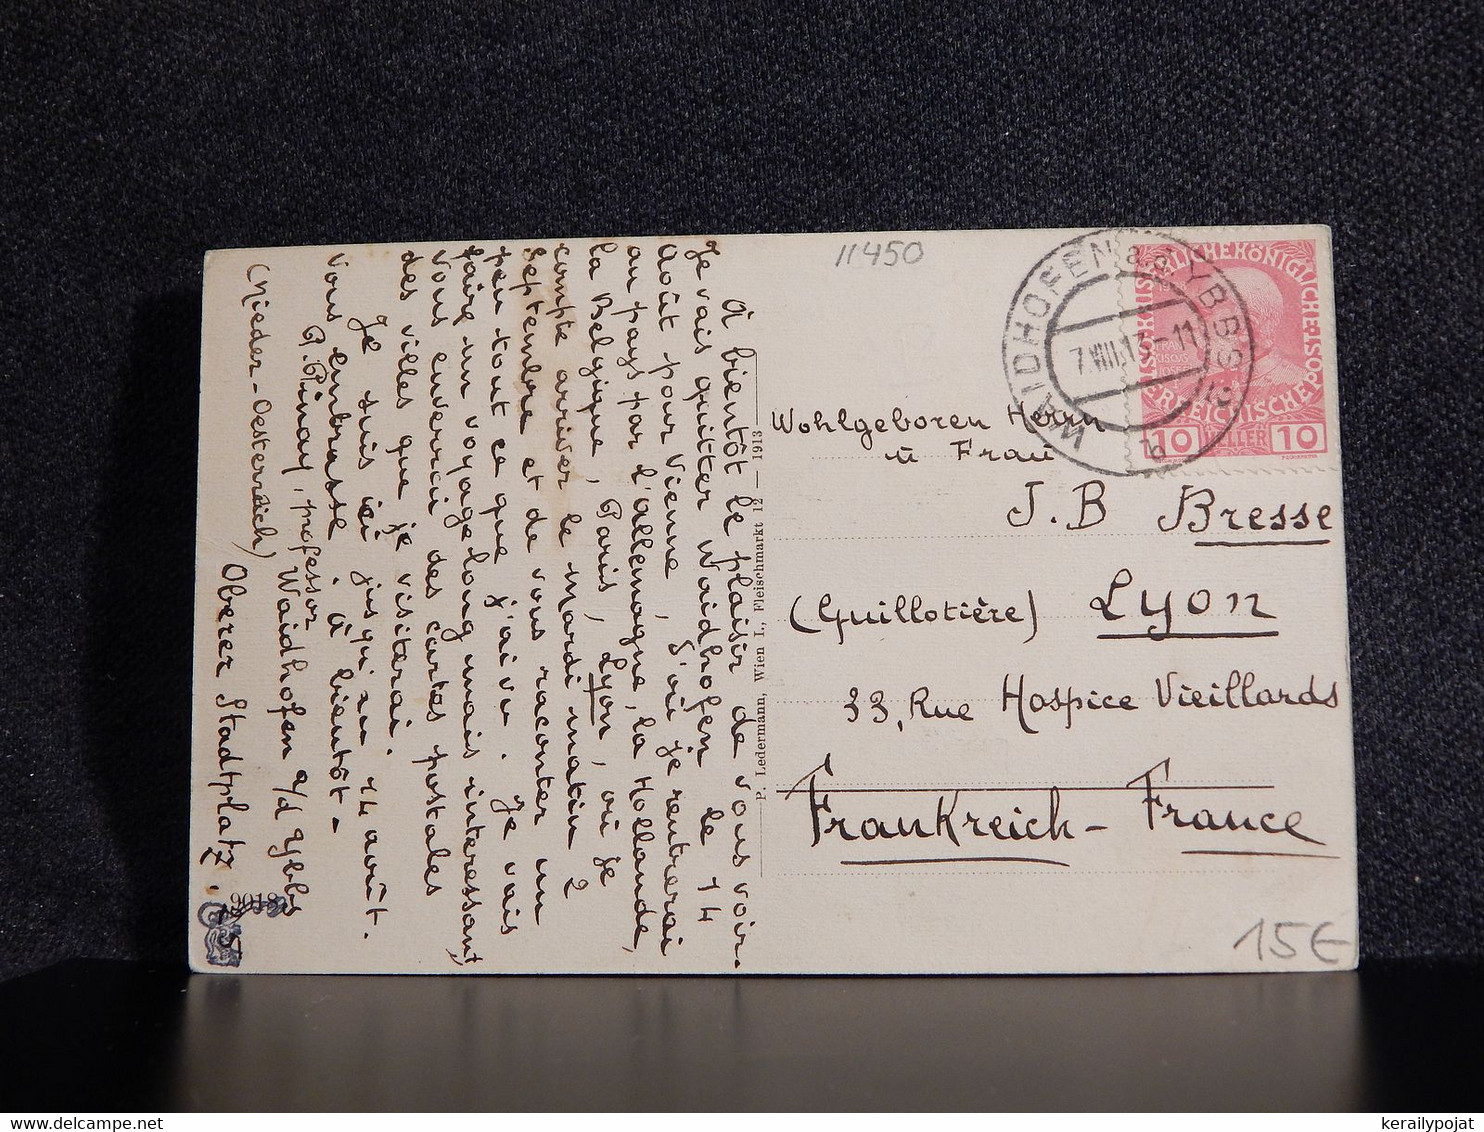 À bientôt le plaisir de vous voir.
Je vais quitter Waidhofen le 14
Août pour Vienne, d'où je rentrerai
au pays par l'allemagne, la Hollande,
la Belgique, Paris, Lyon, où je
compte arriver le Mardi matin 2
septembre et de vous raconter un
peu tout ce que j'ai vu. Je vais
faire un voyage long mais interessant,
vous enverrai des cartes postales
des villes que je visiterai.
Je suis ici jusqu'au 14 août.
Vous embrasse. à bientôt-
P. Pinay, professor
Waidhofen a/d Ybbs
(Nieder-Oesterreich)
Oberer Stadtplatz.
9018
P. Ledermann, Wien I., Fleischmarkt 12 — 1913
11450
WAIDHOFEN a.d. YBBS
7.VIII.13-11
b
KAISERLICHE KÖNIGLICHE
ÖSTERREICHISCHE POST
10 HELLER 10
Wohlgeboren Herrn
u Frau
J. B Bresse
(Guillotière) Lyon
33, Rue Hospice Vieillards
Frankreich - France
15€
kerailypojat
delcampe.net